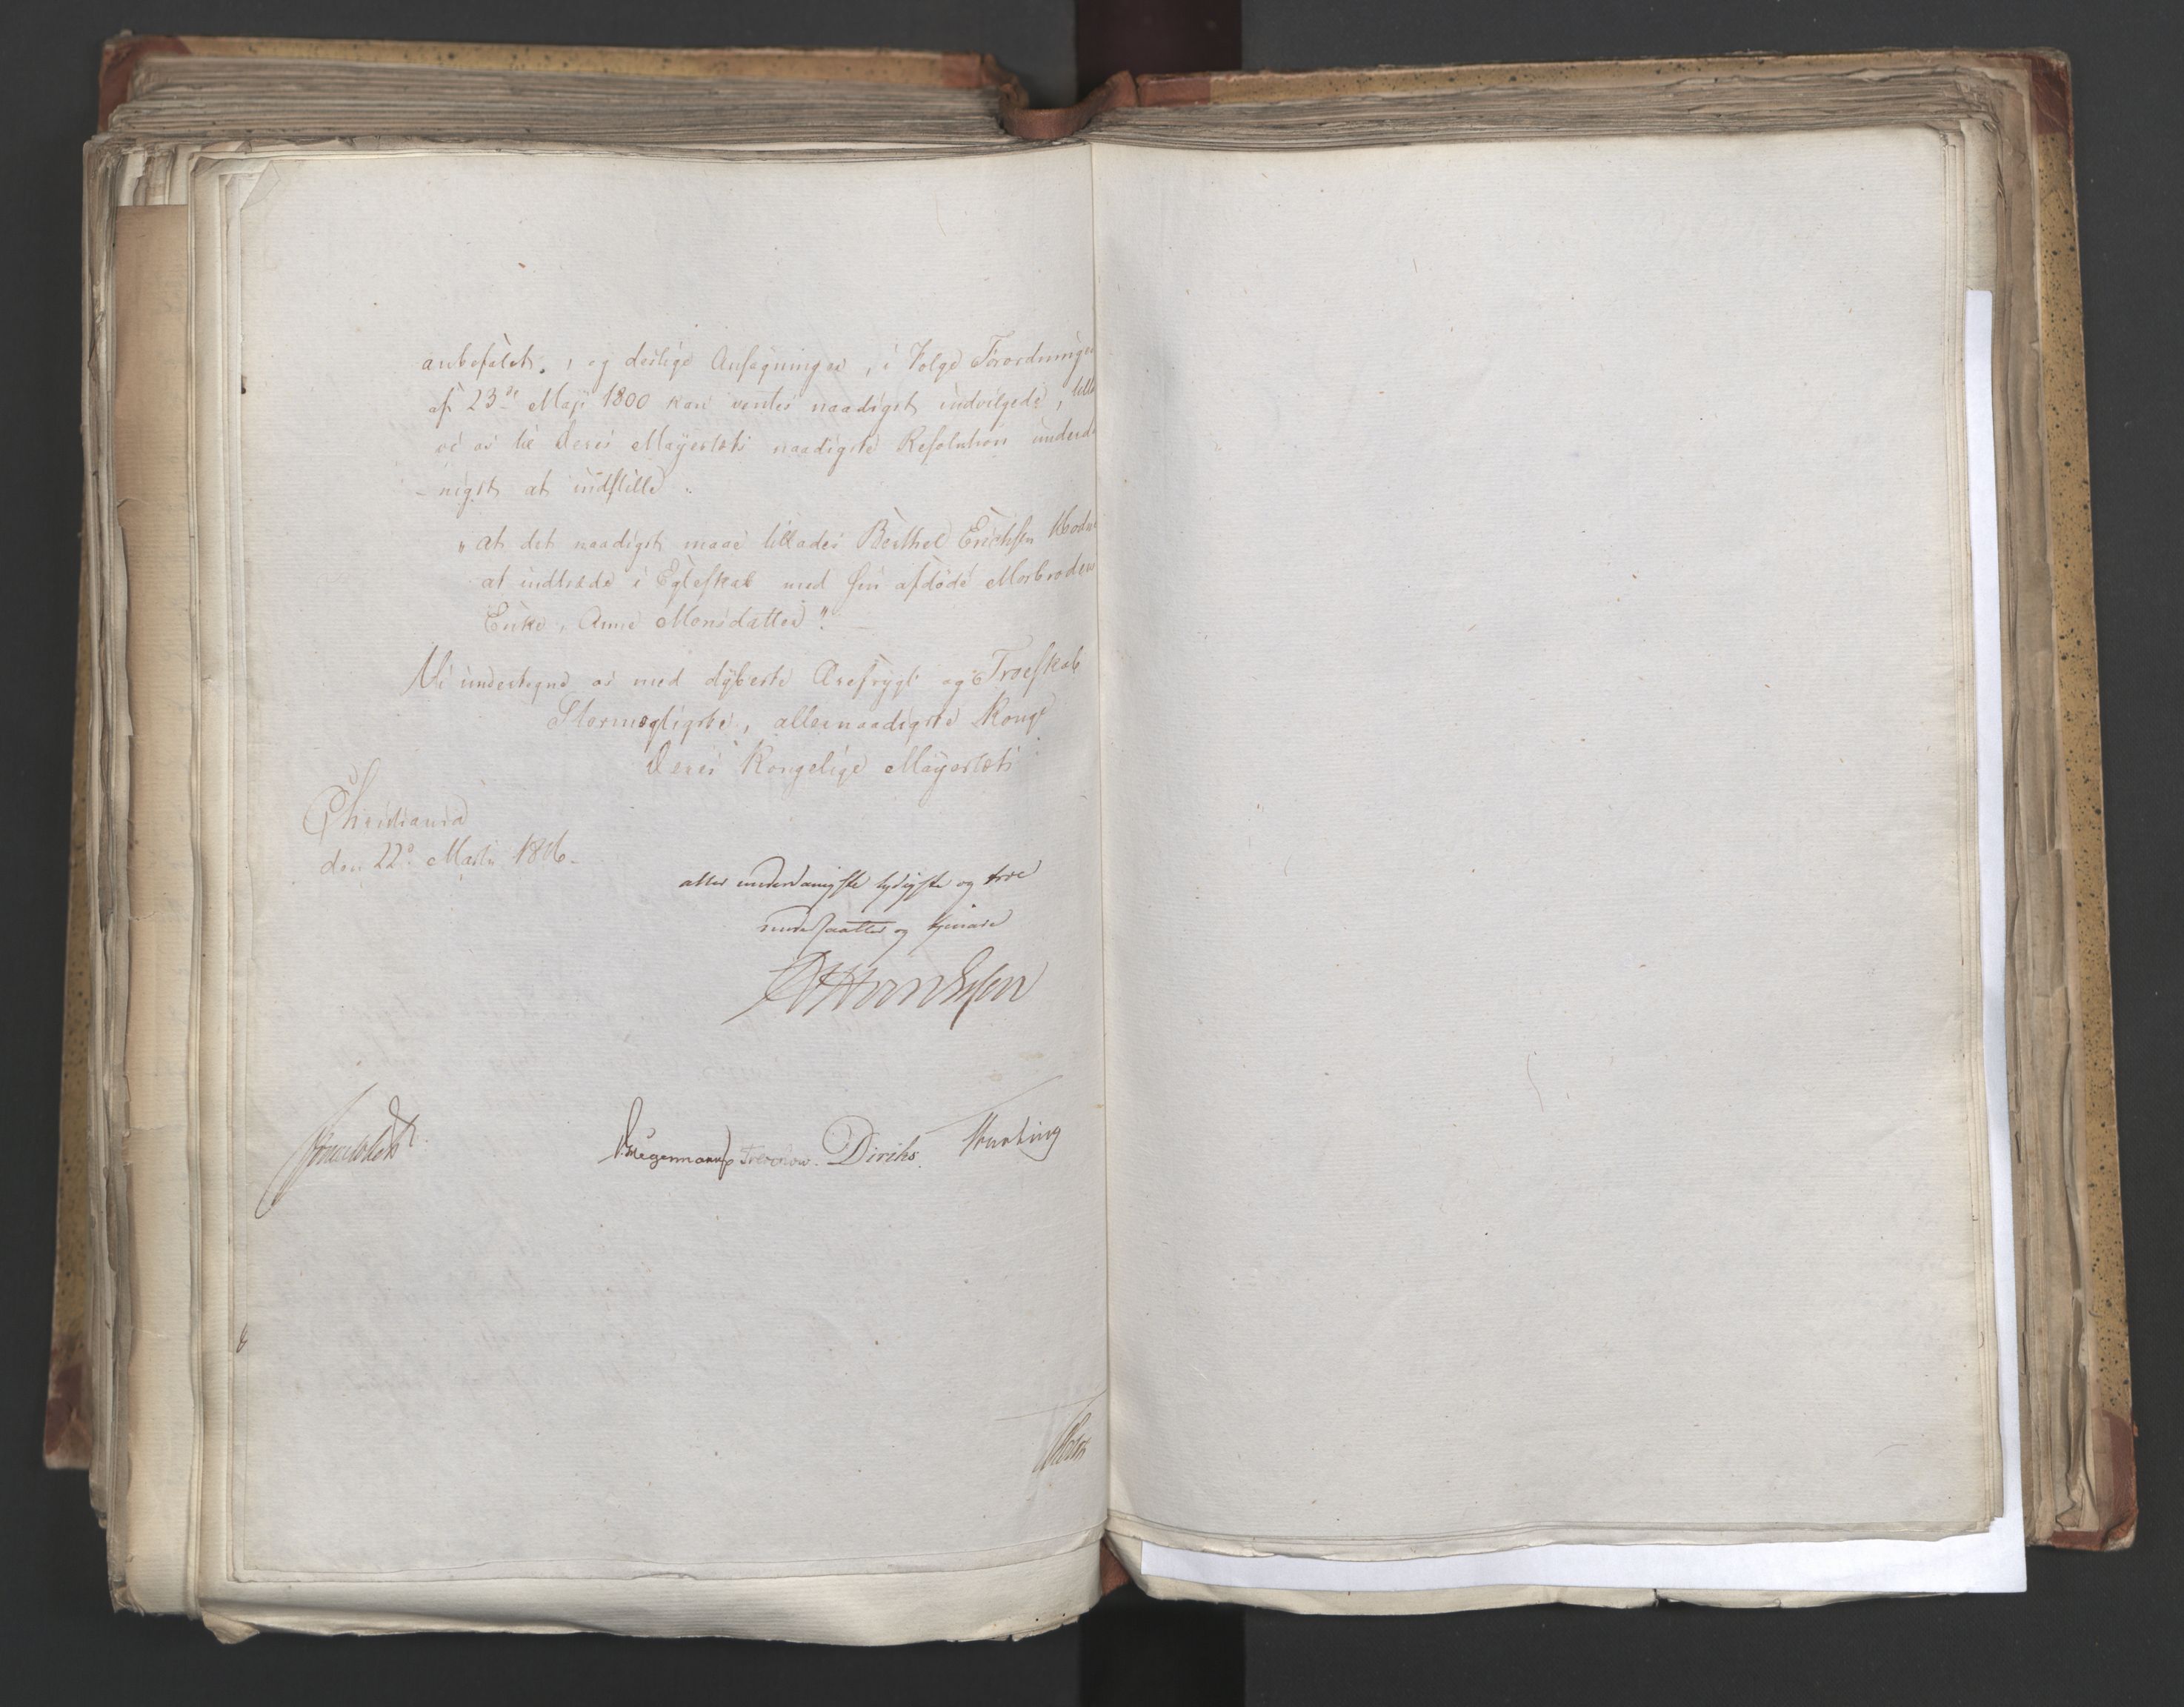 anbefalet, og deslige Ansøgninger, i Følge Forordningen
af 23de Maji 1800 kan ventes naadigst indvilgede, till
vi os til Deres Majestæts naadigste Resolution underda
-nigst at indstille:
"at det naadigst maae tillades Berthel Erichsen
at indtræde i Egteskab med sin afdøde Morbroders
Enke, Anne Monsdatter".
Vi undertegne os med dybeste Ærefrygt og Troeskab
Stormægtigste, allernaadigste Konge
Deres Kongelige Mayestæts
Christiania
den 22de Martii 1816.
aller underdanigste lydigste og troe
undersaatter og tjenere
Diriks